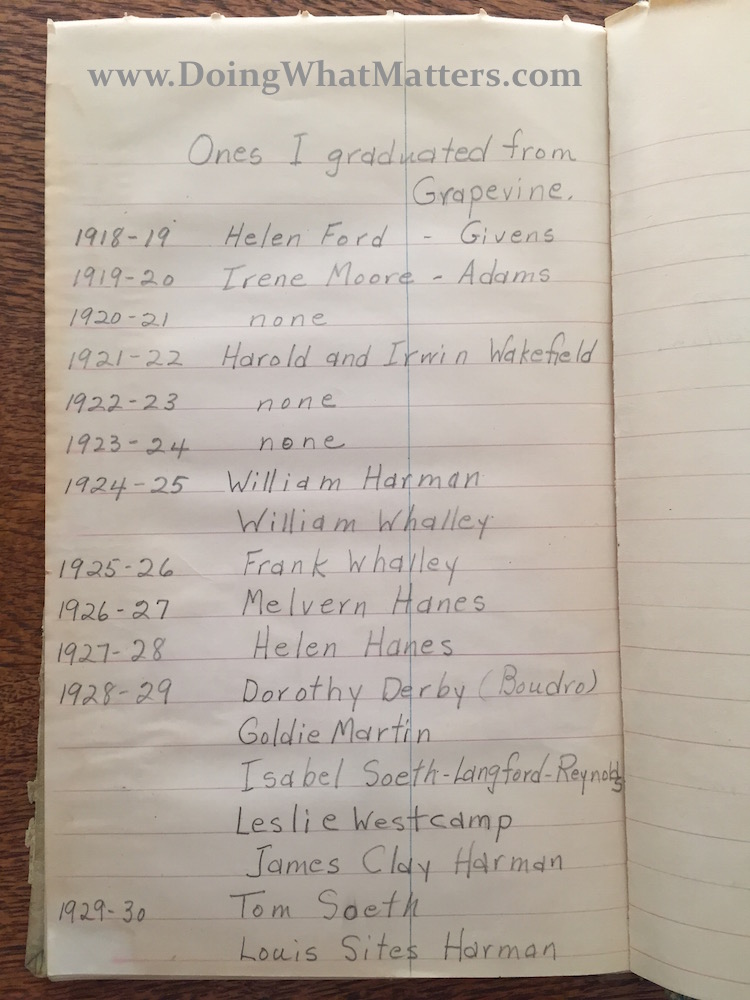 www.DoingWhatMatters.com
Ones I graduated from
Grapevine.
1918-19 Helen Ford - Givens
1919-20 Irene Moore - Adams
1920-21 none
1921-22 Harold and Irwin Wakefield
1922-23 none
1923-24 none
1924-25 William Harman
William Whalley
1925-26 Frank Whalley
1926-27 Melvern Hanes
1927-28 Helen Hanes
1928-29 Dorothy Derby (Boudro)
Goldie Martin
Isabel Soeth-Langford-Reynolds
Leslie Westcamp
James Clay Harman
1929-30 Tom Soeth
Louis Sites Harman